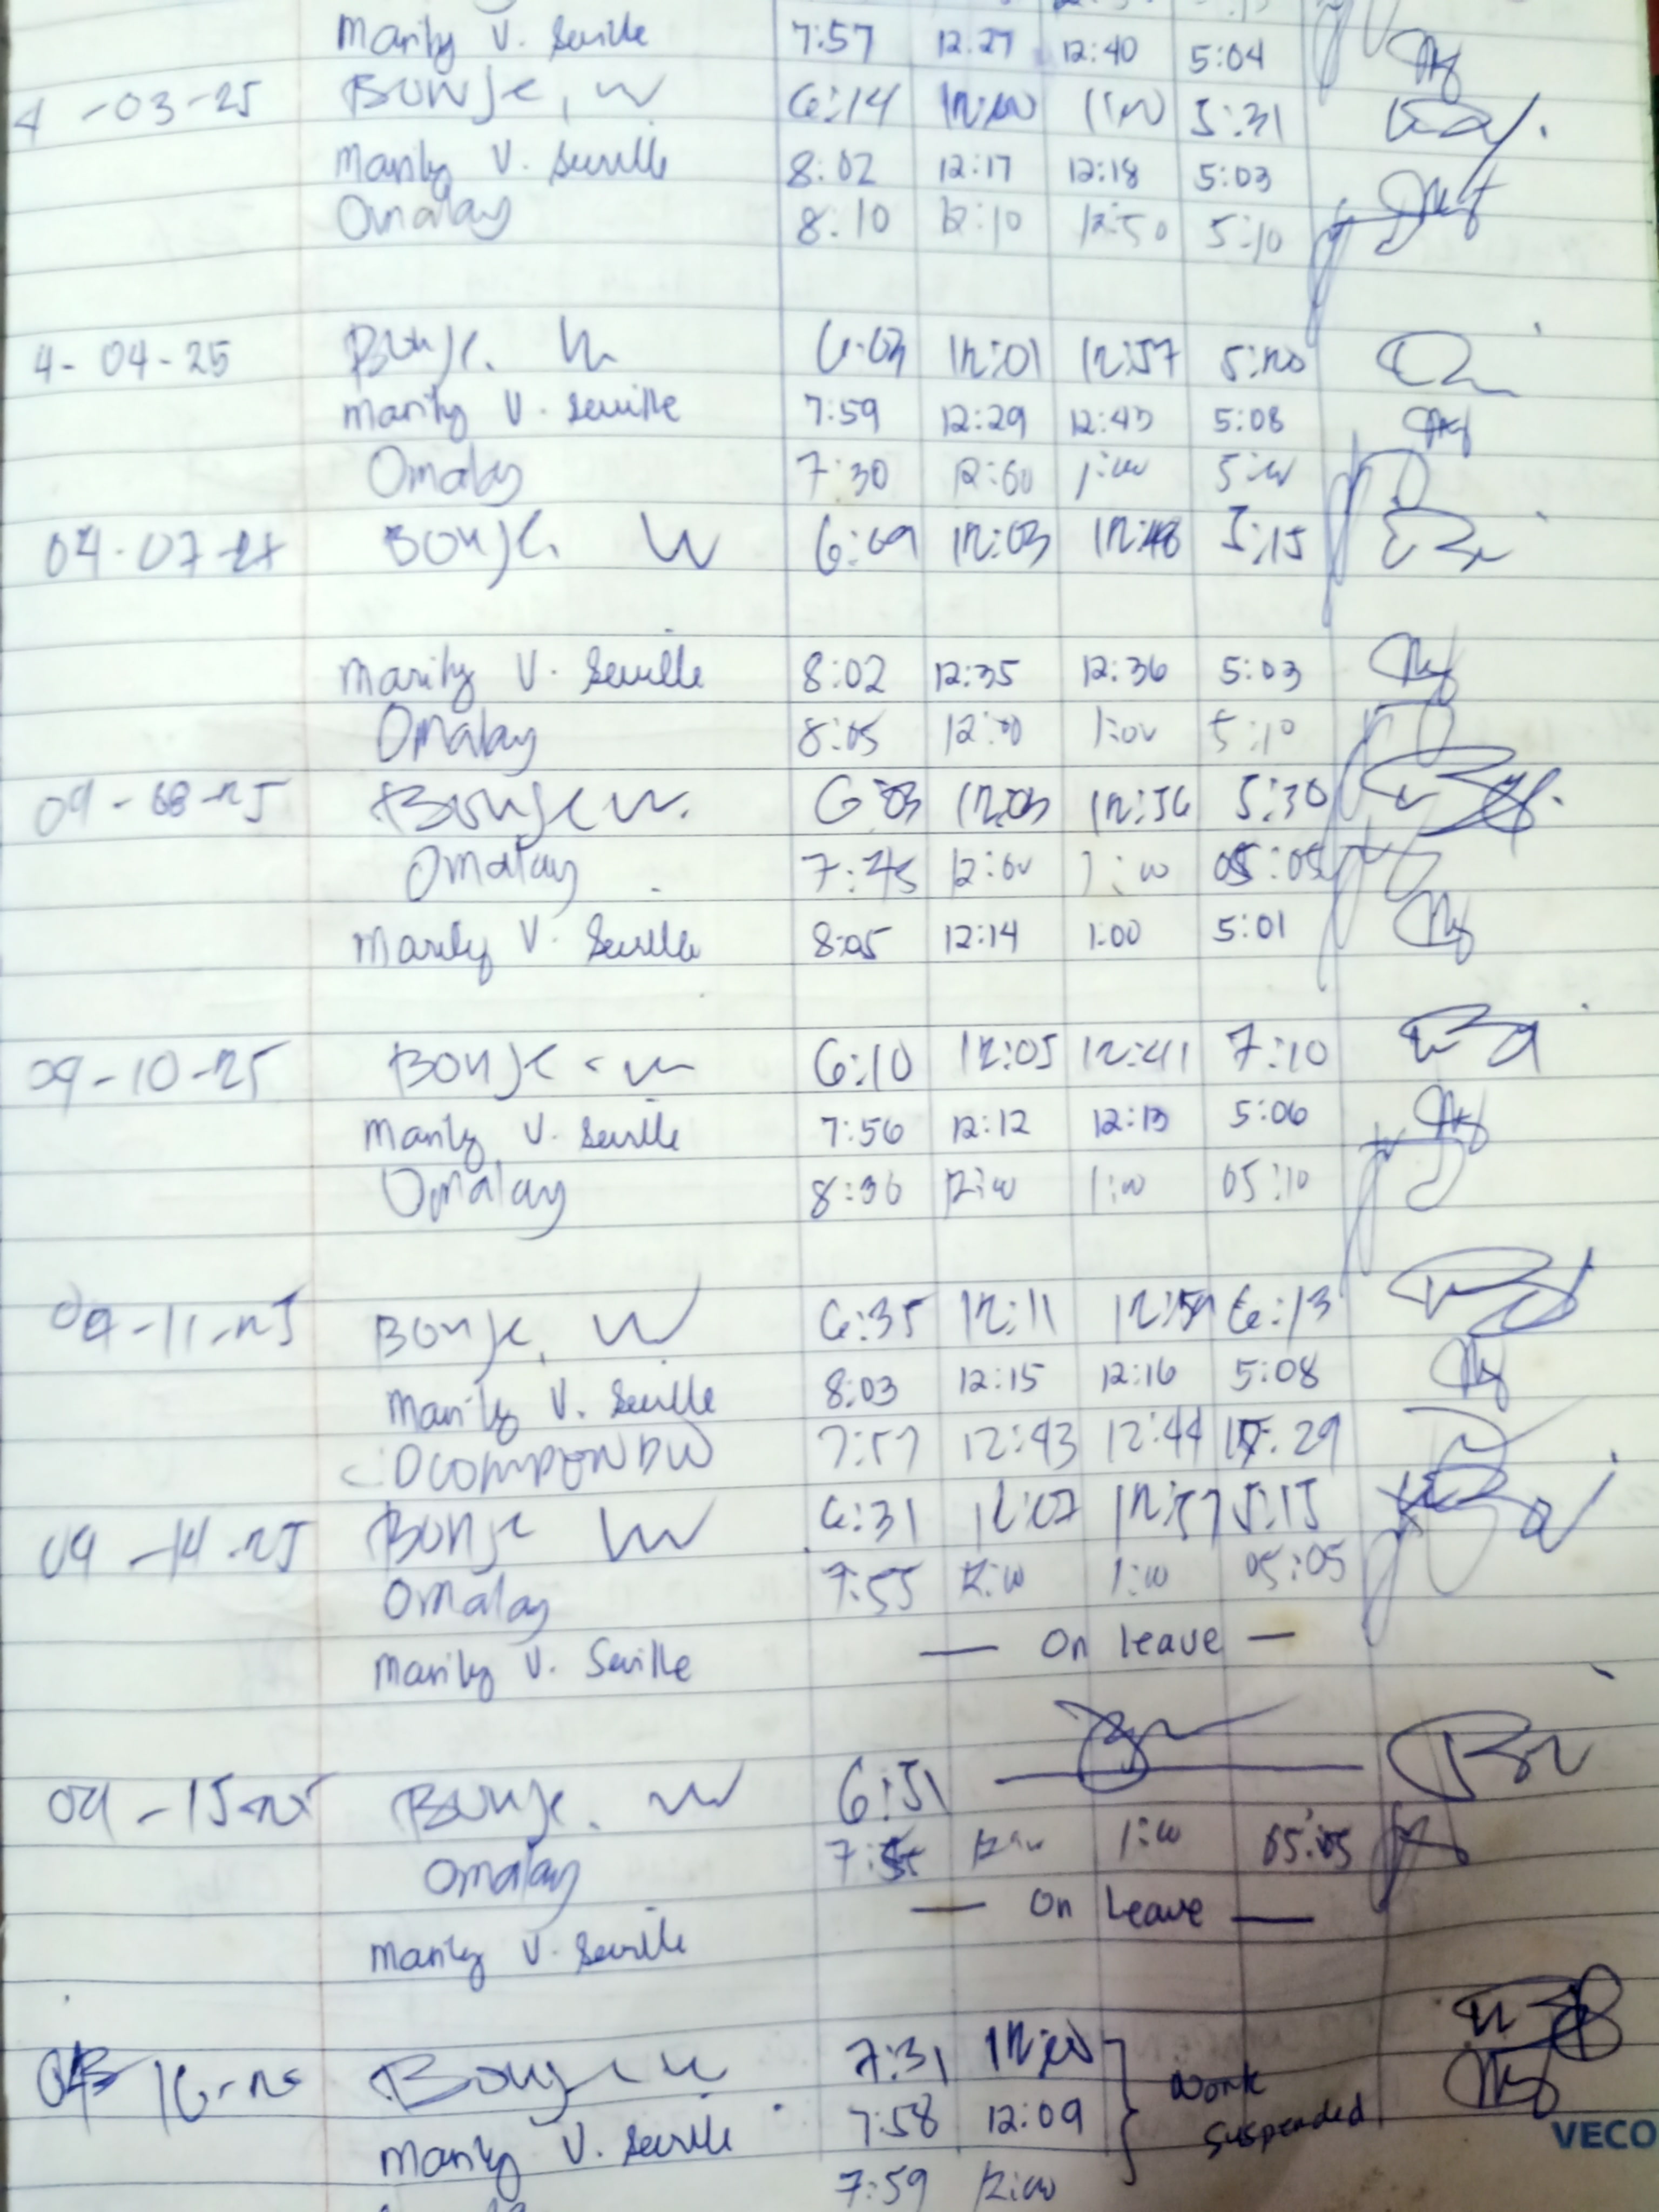 Marily V. Seville 7:57 12:27 12:40 5:04
4-03-25 Bonje, W 6:14 12:00 1:00 5:31
Marily V. Seville 8:02 12:17 12:18 5:03
Omalay 8:10 12:10 12:50 5:10
4-04-25 Bonje. W 6:03 12:01 12:57 5:20
Marily V. Seville 7:59 12:29 12:43 5:08
Omalay 7:30 12:00 1:00 5:00
04-07-25 Bonje, W 6:09 12:03 12:48 5:15
Marily V. Seville 8:02 12:35 12:36 5:03
Omalay 8:05 12:00 1:00 5:10
04-08-25 Bonje W. 6:03 12:03 12:56 5:30
Omalay 7:45 12:00 1:00 05:05
Marily V. Seville 8:05 12:14 1:00 5:01
04-10-25 Bonje W 6:10 12:05 12:41 7:10
Marily V. Seville 7:56 12:12 12:13 5:06
Omalay 8:30 12:00 1:00 05:10
04-11-25 Bonje, W 6:35 12:11 12:59 6:13
Marily V. Seville 8:03 12:15 12:16 5:08
7:57 12:43 12:44 29
04-14-25 Bonje W 6:31 12:07 12:57 5:15
Omalay 7:55 12:00 1:00 05:05
Marily V. Seville — On leave —
04-15-25 Bonje. W 6:51
Omalay 12:00 1:00 05:05
Marily V. Seville — On Leave —
16-25 Bonje W 7:31 12:00
Work
Marily V. Seville 7:58 12:09
Suspended
7:59 12:00
VECO